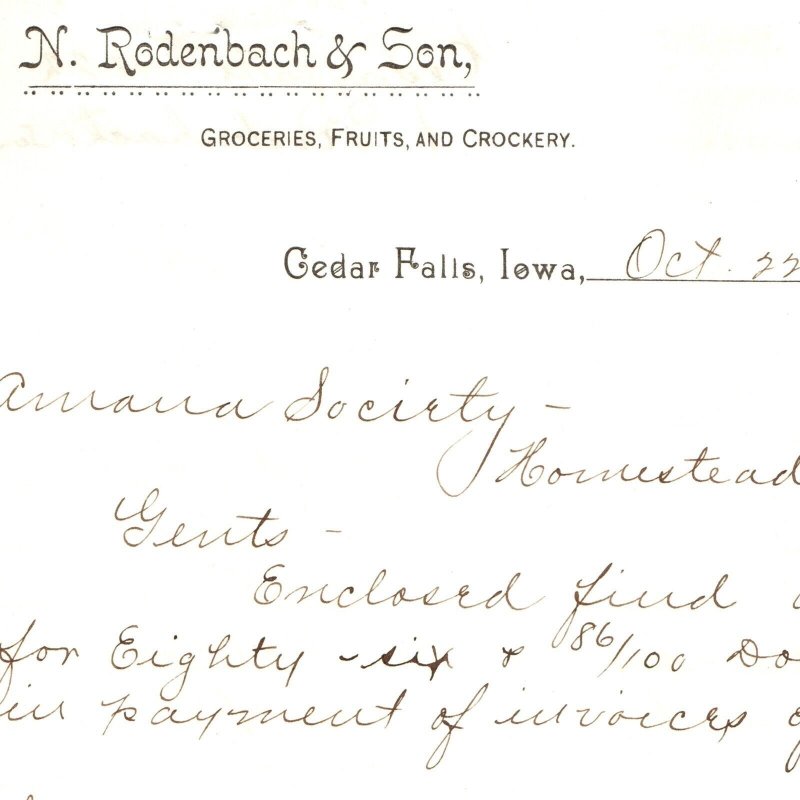 N. Rodenbach & Son,
GROCERIES, FRUITS, AND CROCKERY.
Cedar Falls, Iowa, Oct. 22
Amana Society –
Homestead
Gents –
Enclosed find
for Eighty-six & 86/100 Do
in payment of invoices